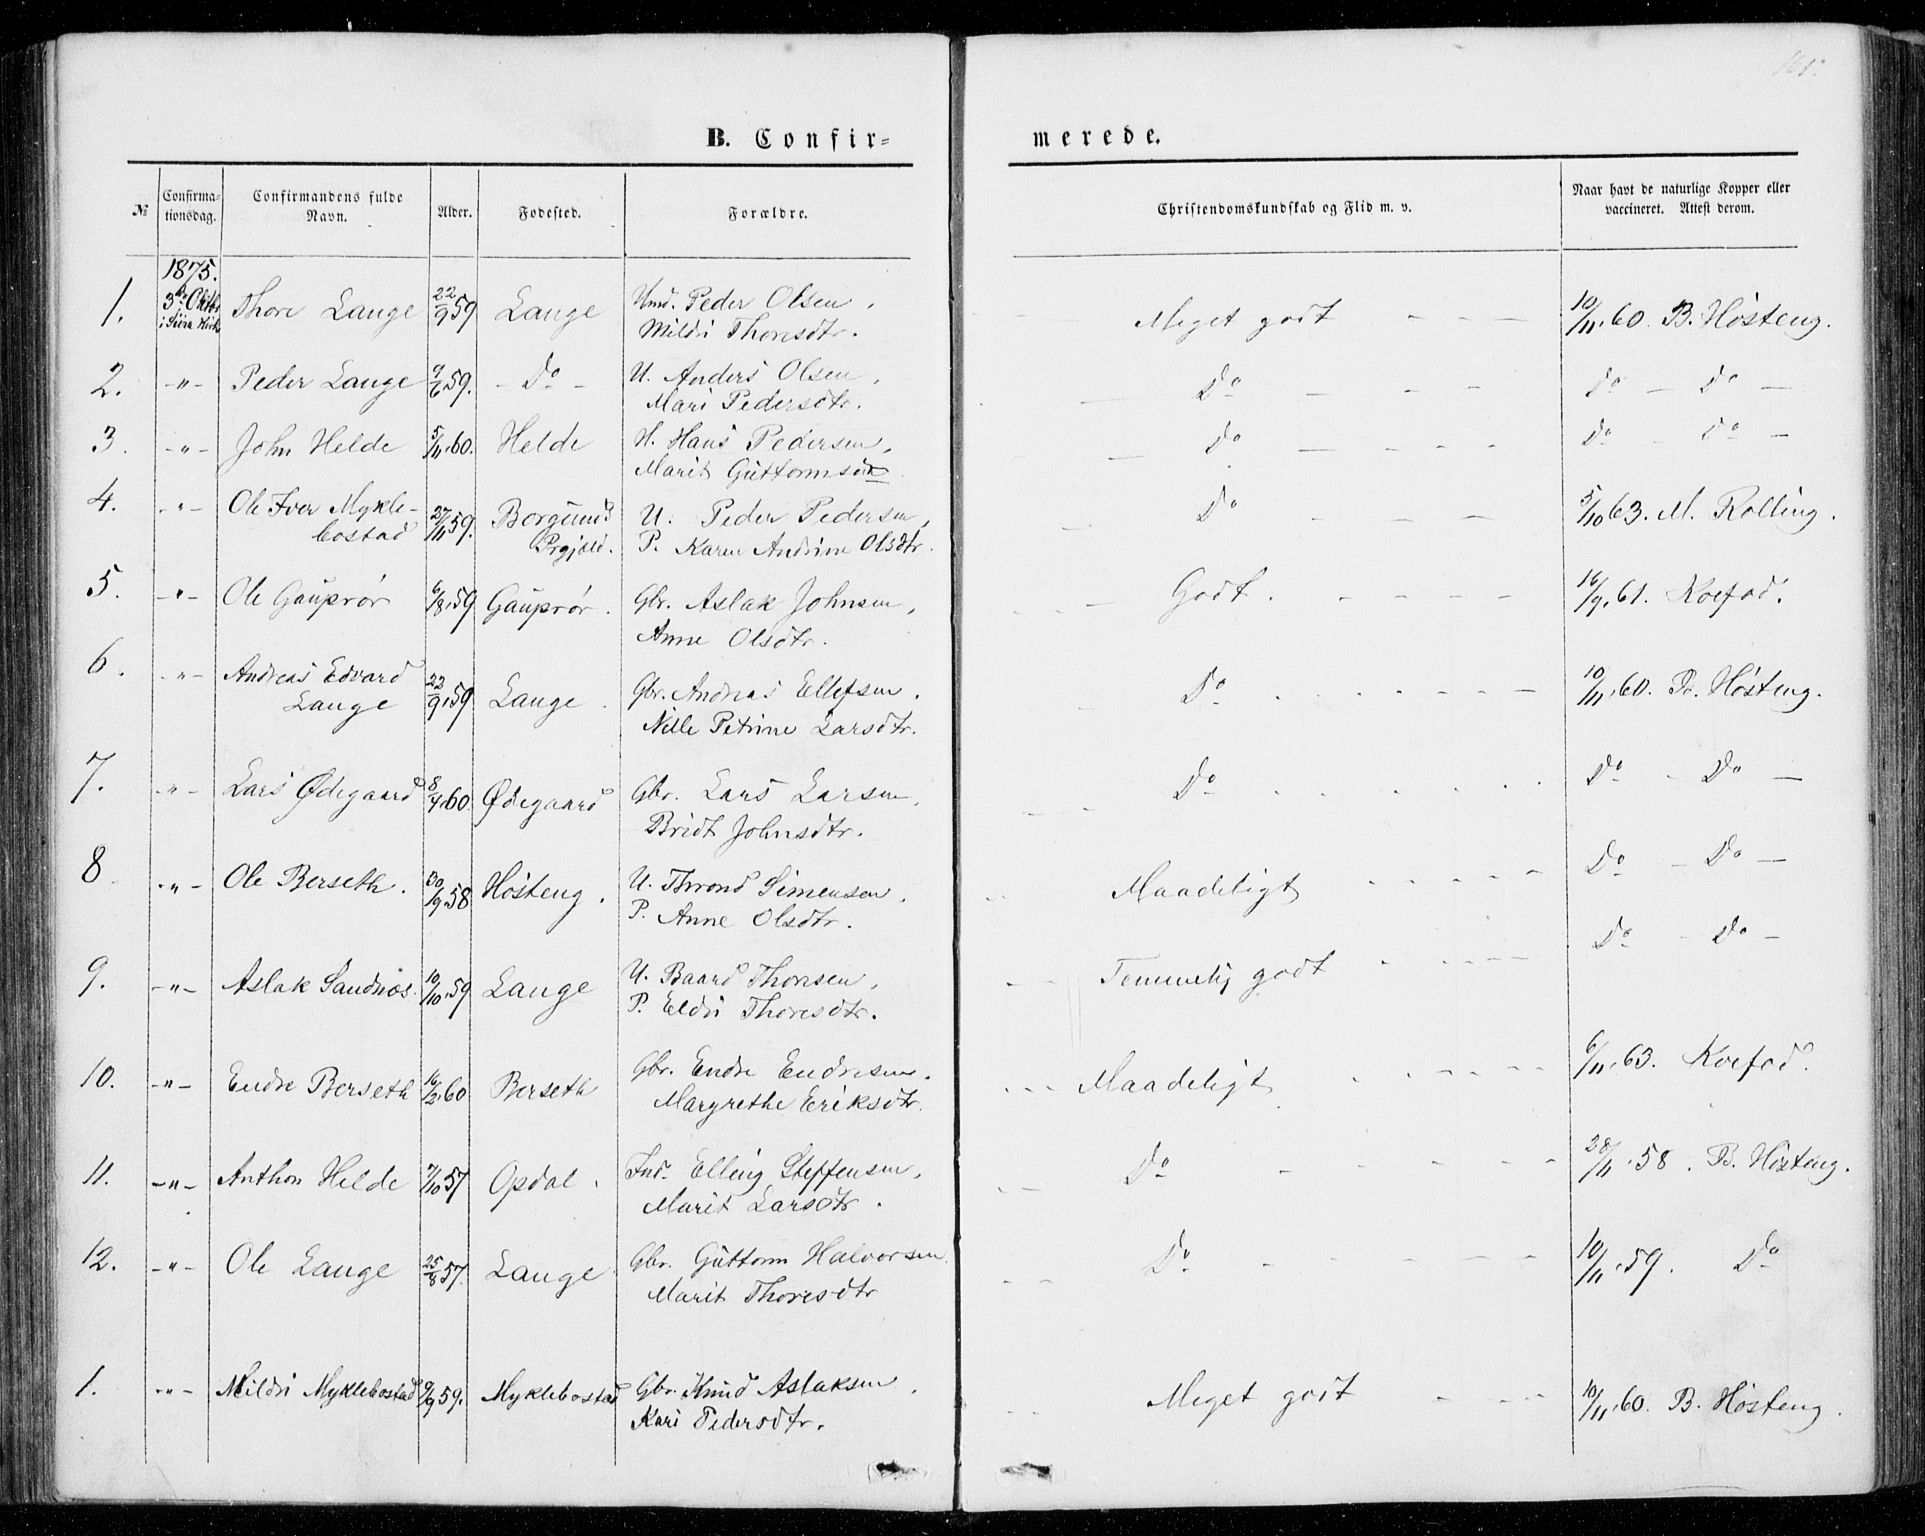 B. Confir=
merede.
№ Confirma-tionsdag. Confirmandens fulde Navn. Alder. Fodested. Forældre. Christendomskundskab og Flid m. v. Naar havt de naturlige Kopper eller vaccineret. Attest derom.
1875.
1. 3die Oktbr Thore Lange 22/9 59 Lange Peder Olsen, Meget godt - - - 10/11.60. B. Hösteng.
Mildri Thoresdtr.
2. -"- Peder Lange 9/6 59. - Do - U. Anders Olsen, Do - - - Do - Do -
Mari Pedersdtr.
3. -"- John Helde 5/11.60. Helde H. Hans Pedersen, Do - - - Do - Do -
Marit Guttormsdtr
4. -"- Ole Iver Mykle- 27/11 59. Borgund U. Peder Pedersen, Do - - - 5/10 63. M. Rolling.
bostad Prgjeld. P. Karen Andrine Olsdtr.
5. -"- Ole Gauprør 6/8.59 Gauprør. Gbr. Aslak Johnsen, Godt. - - - 16/9.61. Koefod.
Anne Olsdtr.
6. -"- Andreas Edvard Gbr. Andreas Ellefsen, Do - - - 10/11.60. B. Hösteng.
Lange 22/9.59 Lange. Nille Petrine Larsdtr.
7. -"- Lars Ødegaard 8/4.60 Ødegaard Gbr. Lars Larsen, Do - - - Do - Do -
Bridt Johnsdtr.
8. -"- Ole Berseth. 30/9.58 Hösteng. U. Thrond Simensen, Maadeligt - - - Do - Do -
P. Anne Olsdtr.
9. -"- Aslak Sandnæs. 10/10.59 Lange U. Baard Thoresen, Temmelig godt - - - Do - Do -
P. Eldri Thoresdtr.
10. -"- Endre Berseth 16/2.60 Berseth Gbr. Endre Endresen, Maadeligt - - - 6/11.63. Koefod.
Margrethe Eriksdtr.
11. -"- Anthon Helde 7/10 57 Opdal. Ind. Elling Steffensen, Do - - - 28/11.58. B. Hösteng.
Marit Larsdtr.
12. -"- Ole Lange 25/8 57. Lange Gbr. Guttorm Halvorsen, Do - - - 10/11.59. Do
Marit Thoresdtr
1. -"- Mildri Myklebostad 9/9 59. Myklebostad Gbr. Knud Aslaksen, Meget godt - - - 10/11.60. B. Hösteng.
Kari Pedersdtr.